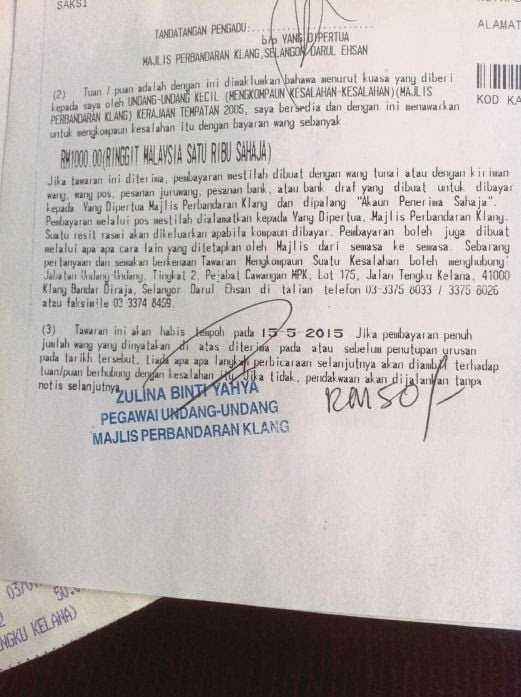 SAKSI
ALAMAT
TANDATANGAN PENGADU:
b/p YANG DIPERTUA
MAJLIS PERBANDARAN KLANG,SELANGOR DARUL EHSAN
KOD KA
(2) Tuan / puan adalah dengan ini dimaklumkan bahawa menurut kuasa yang diberi
kepada saya oleh UNDANG-UNDANG KECIL (MENGKOMPAUN KESALAHAN-KESALAHAN)(MAJLIS
PERBANDARAN KLANG) KERAJAAN TEMPATAN 2005, saya bersedia dan dengan ini menawarkan
untuk mengkompaun kesalahan itu dengan bayaran wang sebanyak
RM1000.00(RINGGIT MALAYSIA SATU RIBU SAHAJA)
Jika tawaran ini diterima, pembayaran mestilah dibuat dengan wang tunai atau dengan kiriman
wang, wang pos, pesanan juruwang, pesanan bank, atau bank draf yang dibuat untuk dibayar
kepada Yang Dipertua Majlis Perbandaran Klang dan dipalang "Akaun Penerima Sahaja".
Pembayaran melalui pos mestilah dialamatkan kepada Yang Dipertua, Majlis Perbandaran Klang.
Suatu resit rasmi akan dikeluarkan apabila kompaun dibayar. Pembayaran boleh juga dibuat
melalui apa-apa cara lain yang ditetapkan oleh Majlis dari semasa ke semasa. Sebarang
pertanyaan dan semakan berkenaan Tawaran Mengkompaun Suatu Kesalahan boleh menghubungi
Jabatan Undang-Undang, Tingkat 2, Pejabat Cawangan MPK, Lot 175, Jalan Tengku Kelana, 41000
Klang Bandar Diraja, Selangor Darul Ehsan di talian telefon 03-3375 8033 / 3375 8026
atau faksimile 03-3374 8459.
(3) Tawaran ini akan habis tempoh pada 15-5-2015 Jika pembayaran penuh
jumlah wang yang dinyatakan di atas diterima pada atau sebelum penutupan urusan
pada tarikh tersebut, tiada apa apa langkah perbicaraan selanjutnya akan diambil terhadap
tuan/puan berhubung dengan kesalahan itu. Jika tidak, pendakwaan akan dijalankan tanpa
notis selanjutnya.
ZULINA BINTI YAHYA
PEGAWAI UNDANG-UNDANG
MAJLIS PERBANDARAN KLANG
RM50/-
NGKU KELANA)